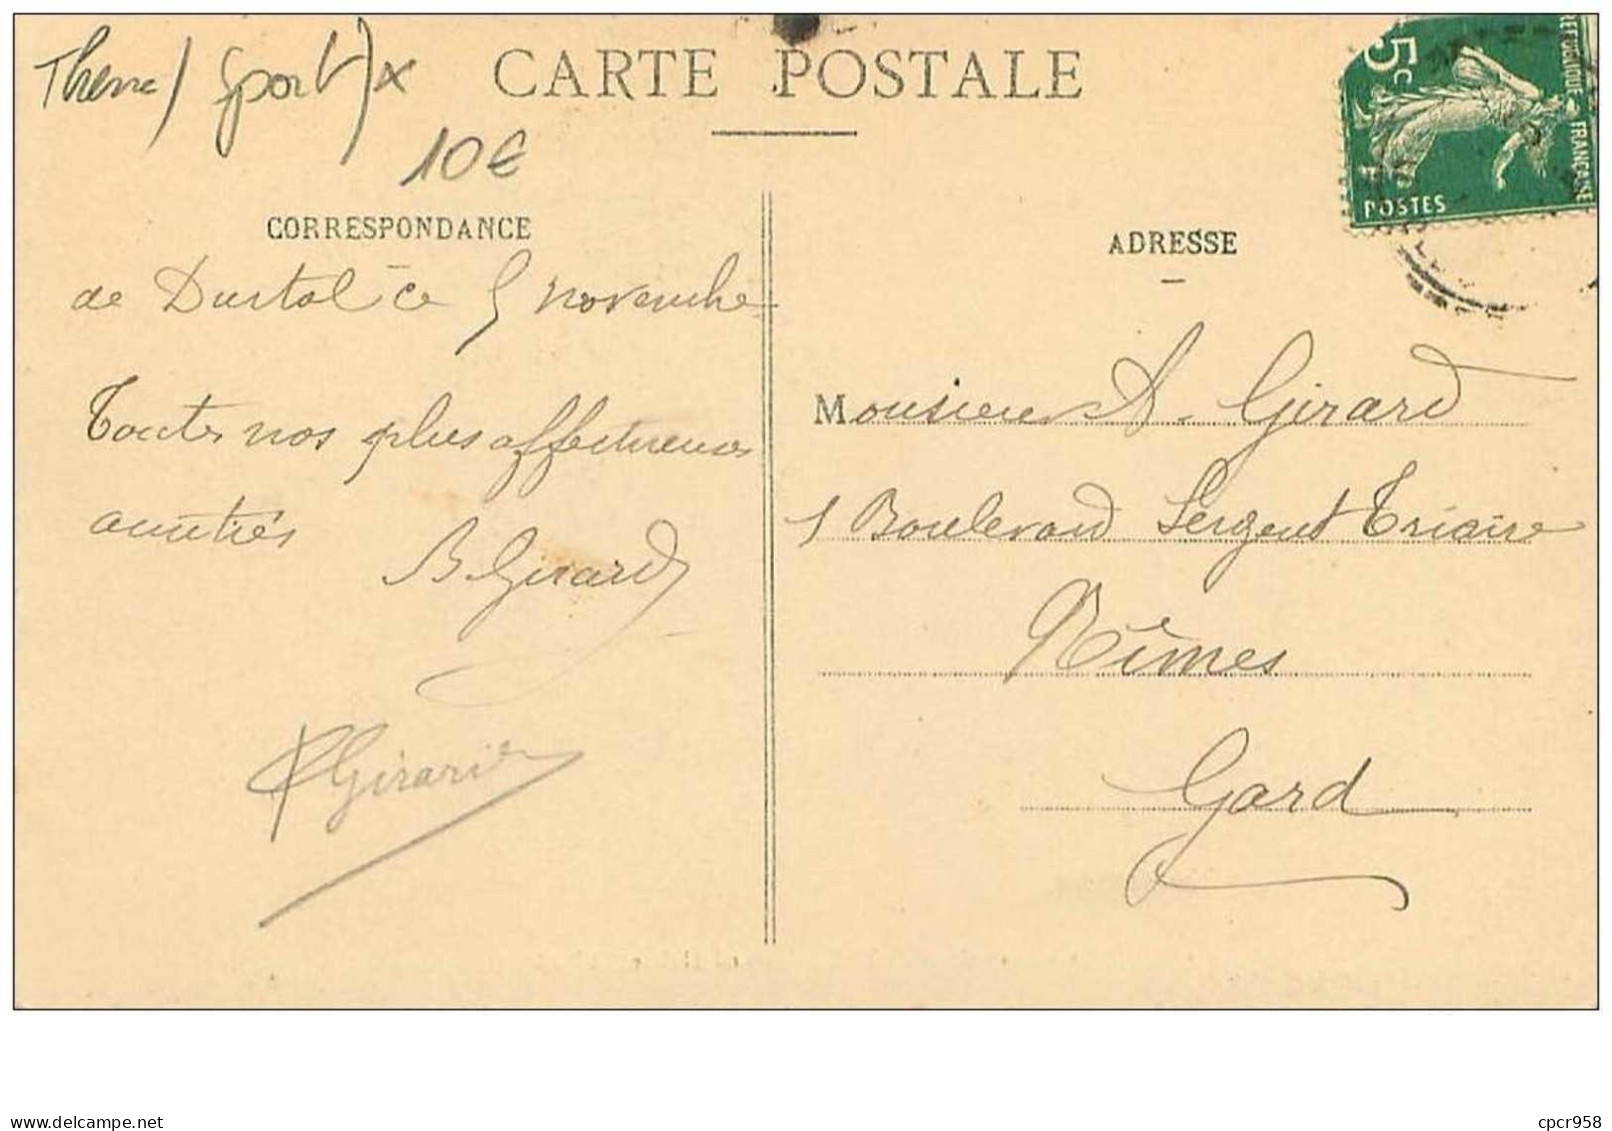 Theme / Sport / x
CARTE POSTALE
10€
5c
REPUBLIQUE FRANÇAISE
POSTES
CORRESPONDANCE
de Durtal ce 5 novembre
Toutes nos plus affectueuses
amitiés
B Girard
Girard
ADRESSE
Monsieur A. Girard
1 Boulevard Sergent Triaire
Nîmes
Gard
https://www.delcampe.net
cpcr958